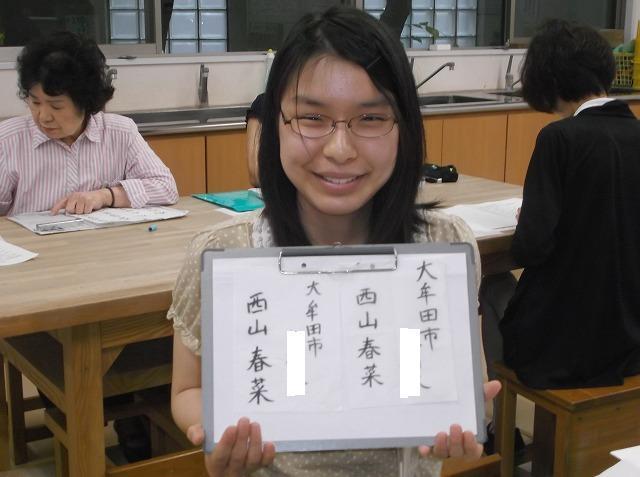 大牟田市
西山春菜
大牟田市
西山春菜